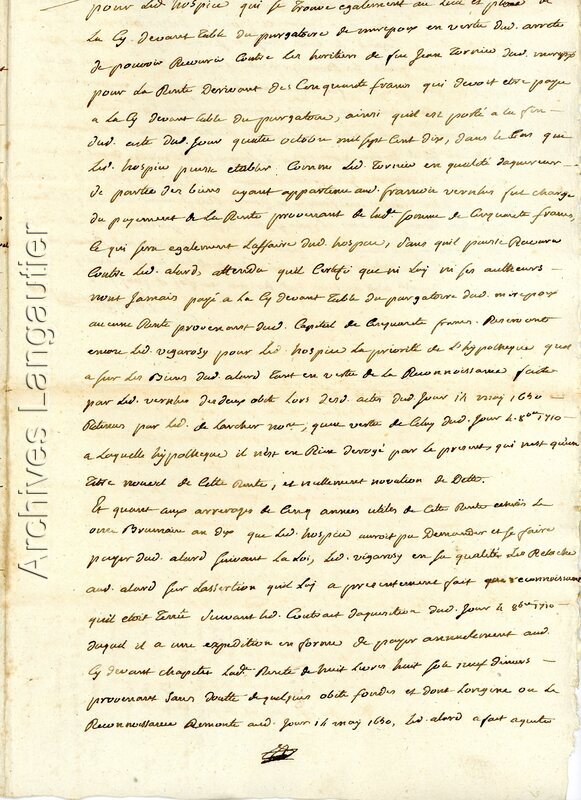 pour led. hospice qui se trouve egalement au lieu et place de
La Cy devant table du purgatoire de mirepoix en vertu dud. arrete
de pouvoir Recourir Contre les heritiers de feu Jean Tornier dud. mirepoix
pour La Rente derivant des Cinquante francs qui devoit etre payée
a La Cy devant table du purgatoire, ainsi quil est porté a la fin
dud. acte dud. Jour quatre octobre mil sept Cent dix, dans le Cas que
Led. hospice puisse etablir Comme led. Tornier en qualité daquereur
de partie des biens ayant appartenu aud. francois vernhes fut chargé
du payement de La Rente provenant de lad.e somme de Cinquante francs,
Ce qui sera egalement Laffaire dud. hospice, sans quil puisse Recourir
Contre led. alard, attendu quil Certifie que ni Luy ni ses autheurs
nont Jamais payé a La Cy devant Table du purgatoire dud. mirepoix
aucune Rente provenant dud. Capital de Cinquante francs. Reservant
encore Led. vigarosy pour Led. hospice La priorité de L'hypotheque quil
a sur Les Biens dud. alard tant en vertu de La Reconnoissance faite
par Led. vernhes des deux obits Lors desd. actes dud. Jour 14 may 1650
Retenus par Led. de Larcher nore, quen vertu de Celuy dud. Jour 4. 8bre 1710
a Laquelle hypotheque il n'est en Rien derogé par le present, qui nest quun
titre nouvel de Cette Rente, et nullement novation de Dette.
Et quant aux arrerages de Cinq années utiles de Cette Rente echues Le
onze Brumaire an dix que Led. hospice auroit pu Demander et se faire
payer dud. alard suivant La Loi, Led. vigarosy en sa qualité Les Relache
aud. alard sur Lassertion quil Luy a presentement fait que reconnoissant
quil etoit Tenu suivant led. Contract daquisition dud. Jour 4 8bre 1710
duquel il a une expedition en forme de payer annuellement aud.
Cy devant chapitre Lad. Rente de huit Livres huit sols deux deniers
provenant sans doutte de quelques obits fondés et dont Lorigine ou La
Reconnoissance Remonte aud. Jour 14 may 1650, Led. alard a fait
Archives Langautier